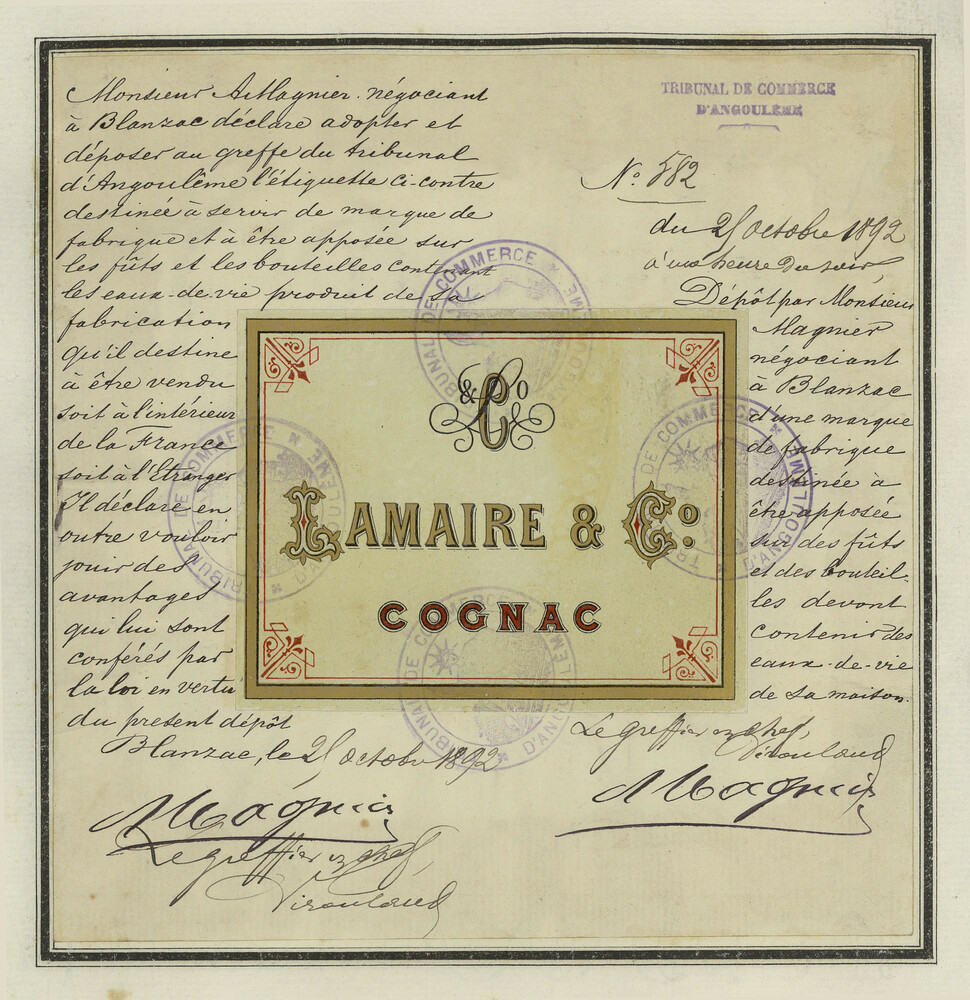 Monsieur A Magnier négociant
à Blanzac déclare adopter et
déposer au greffe du tribunal
d'Angoulême l'étiquette ci-contre
destinée à servir de marque de
fabrique et à être apposée sur
les fûts et les bouteilles contenant
les eaux-de-vie produit de sa
fabrication
qu'il destine
à être vendu
soit à l'intérieur
de la France
soit à l'Etranger
Il déclare en
outre vouloir
jouir des
avantages
qui lui sont
conférés par
la loi en vertu
du present dépôt
Blanzac, le 25 octobre 1892
AMagnier
Le greffier en chef,
Viroulaud
TRIBUNAL DE COMMERCE
D'ANGOULÊME
N° 582
du 25 octobre 1892
à une heure du soir
Dépôt par Monsieur
Magnier
négociant
à Blanzac
d'une marque
de fabrique
destinée à
être apposée
sur des fûts
et des bouteil-
les devant
contenir des
eaux-de-vie
de sa maison.
Le greffier en chef,
Viroulaud
AMagnier
& Co
LAMAIRE & Co
COGNAC
TRIBUNAL DE COMMERCE D'ANGOULEME
TRIBUNAL DE COMMERCE D'ANGOULEME
TRIBUNAL DE COMMERCE D'ANGOULEME
TRIBUNAL DE COMMERCE D'ANGOULEME